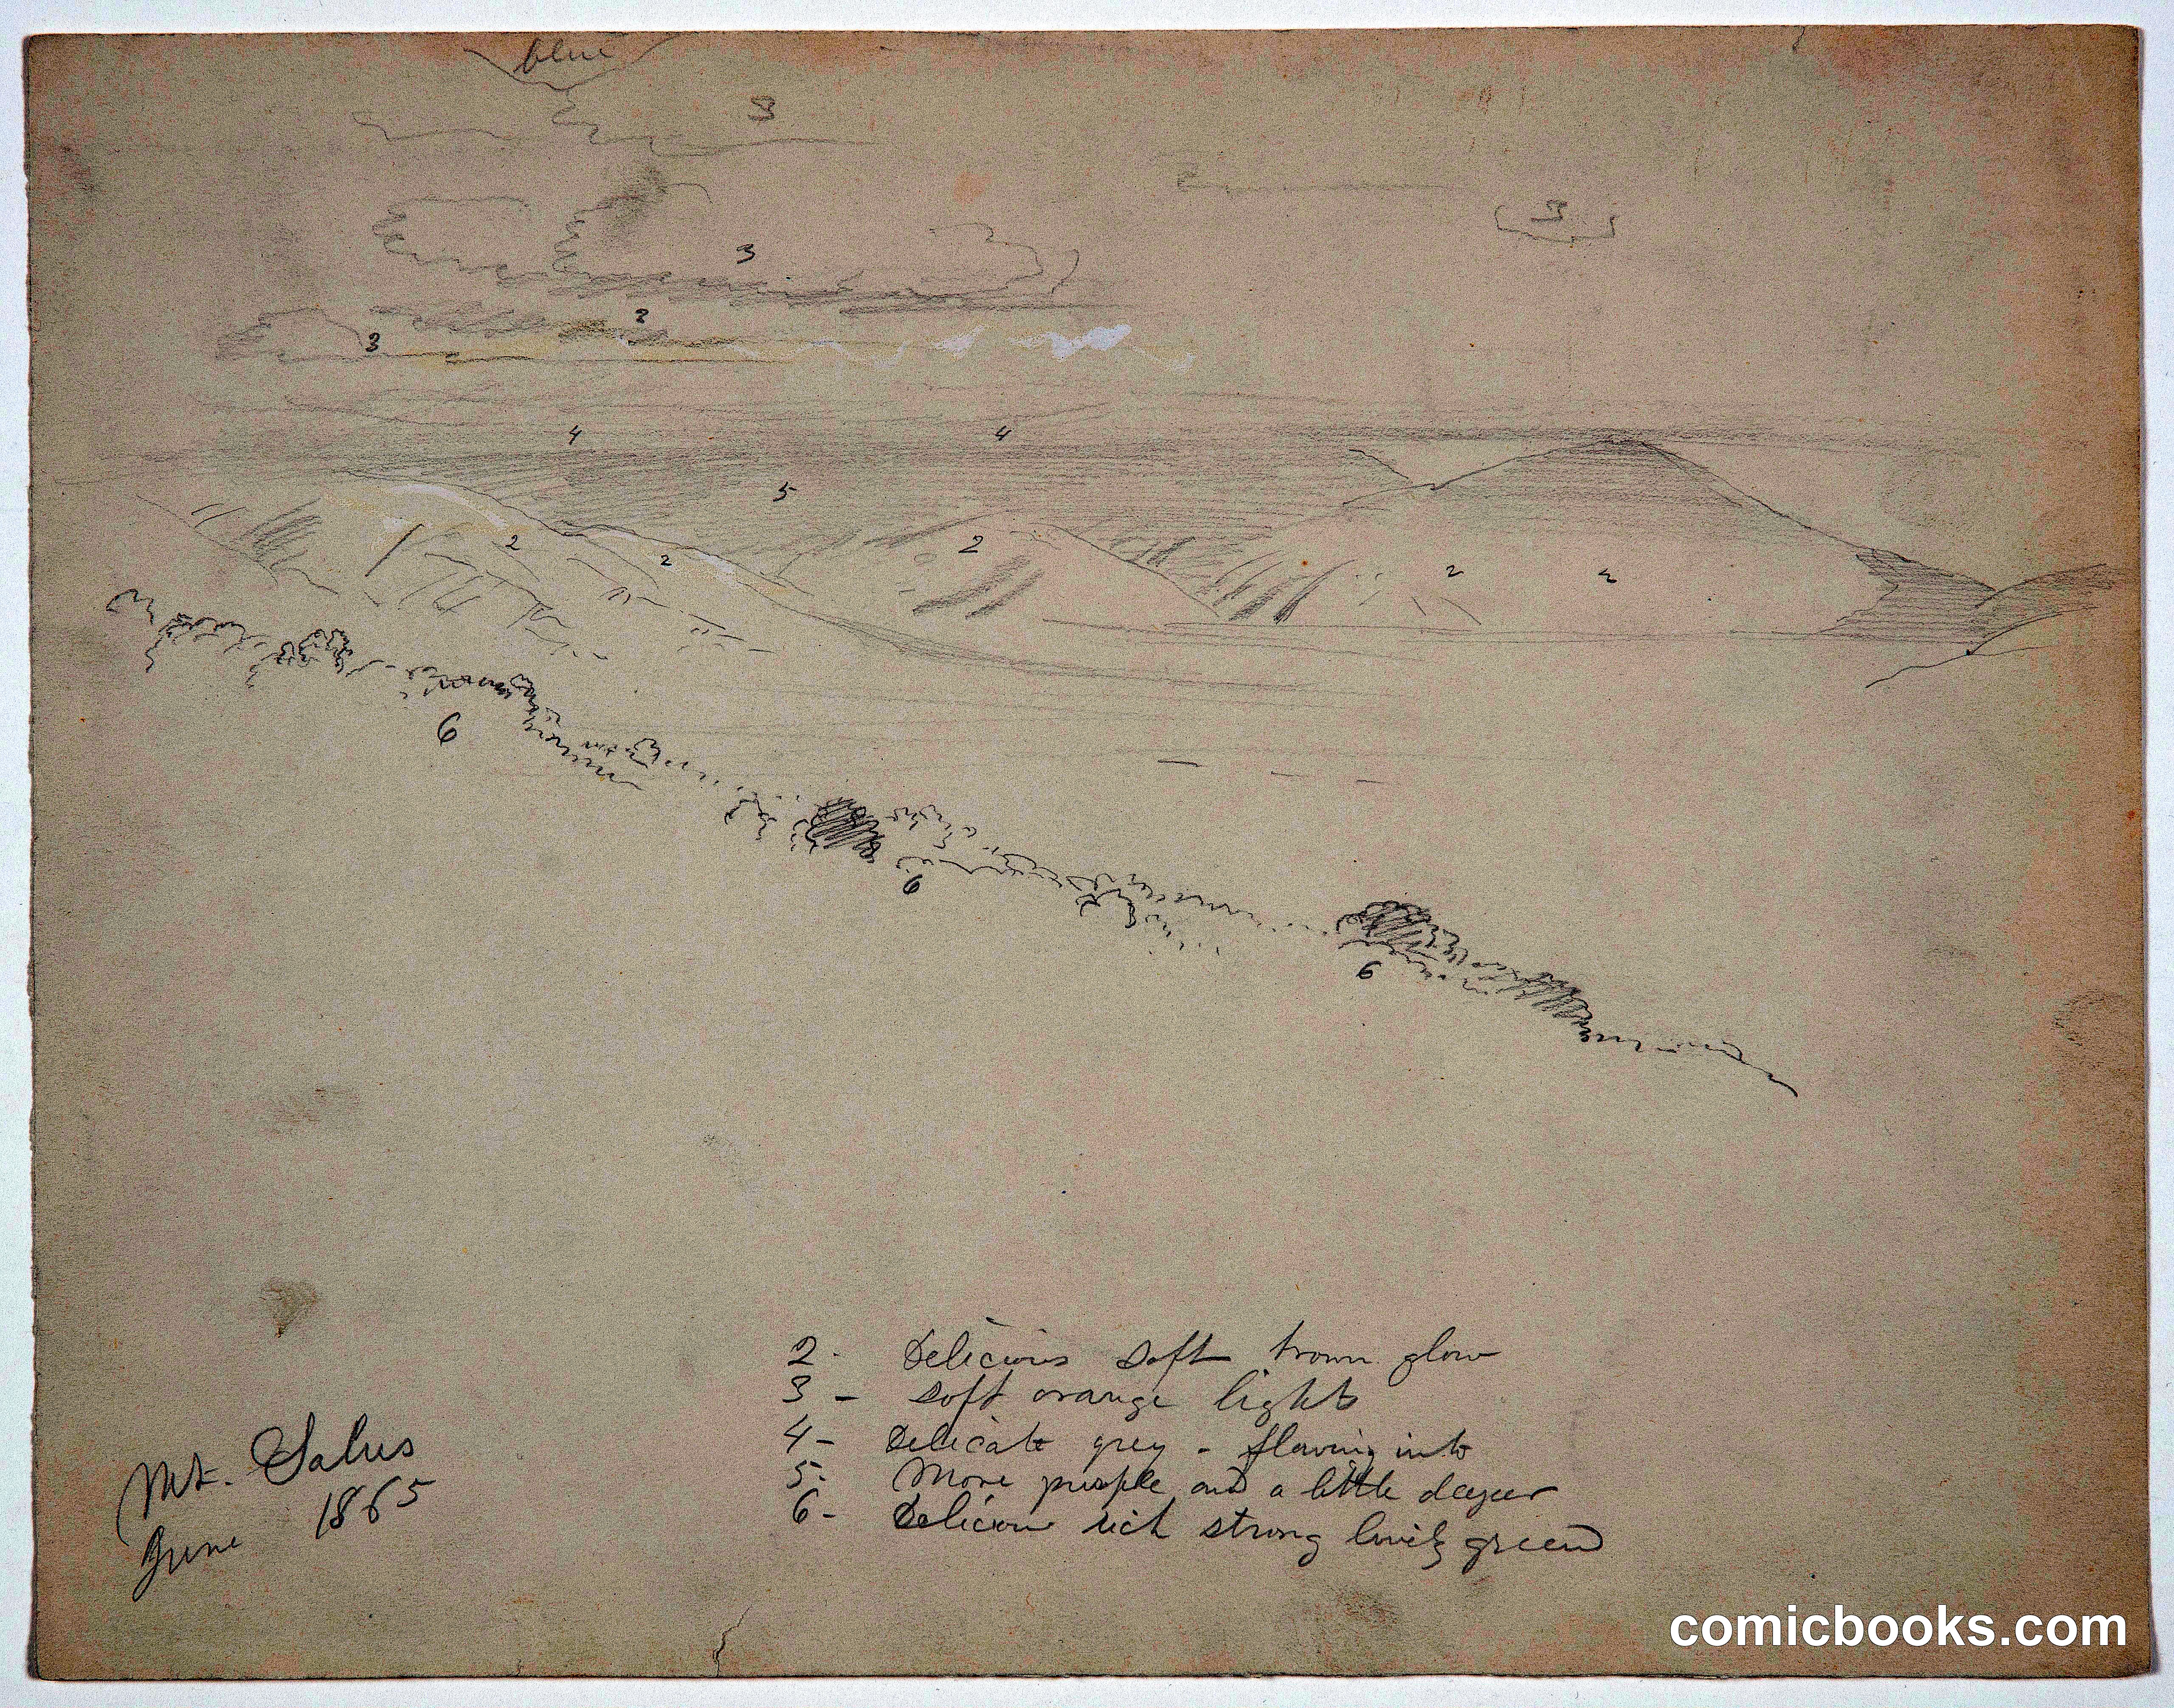 blue
3
3
3
3
3
4 4
5
2 2 2 2 2
6
6
6
2 - Delicious soft brown glow
3 - soft orange light
4 - Delicate grey - flowing into
5 - More purple and a little deeper
6 - Delicious rich strong lively green
Mt. Salus
June 1865
comicbooks.com